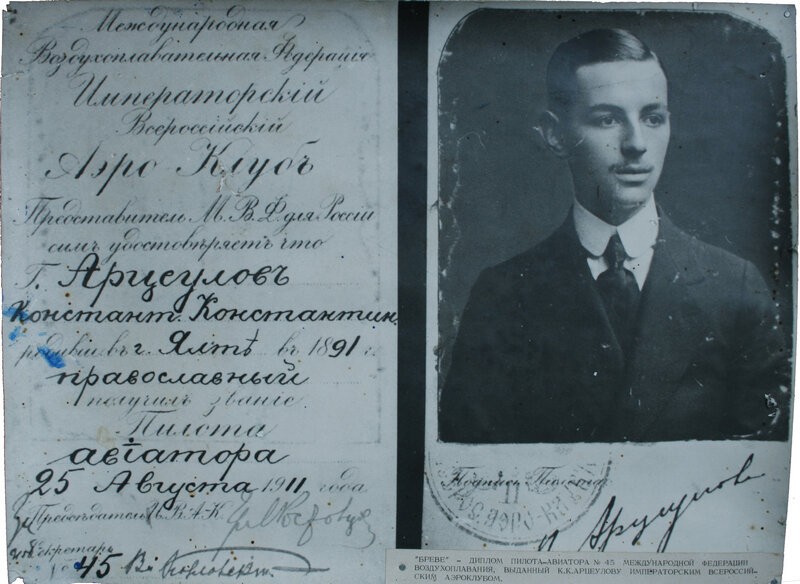 Международная
Воздухоплавательная Федерація
Императорскій
Всероссійскій
Аэро Клубъ
Представитель М. В. Ф. для Россіи
симъ удостовѣряетъ что
Г. Арцеуловъ
Констант. Константин.
родивш въ г. Ялтѣ въ 1891 г.
православный
получилъ званіе
Пилота
авіатора
25 Августа 1911 года
Председатель И. В. А. К.
Секретарь
45
Подпись Пилота
"БРЕВЕ" - ДИПЛОМ ПИЛОТА-АВИАТОРА № 45 МЕЖДУНАРОДНОЙ ФЕДЕРАЦИИ
ВОЗДУХОПЛАВАНИЯ, ВЫДАННЫЙ К.К.АРЦЕУЛОВУ ИМПЕРАТОРСКИМ ВСЕРОССИЙ-
СКИМ АЭРОКЛУБОМ.